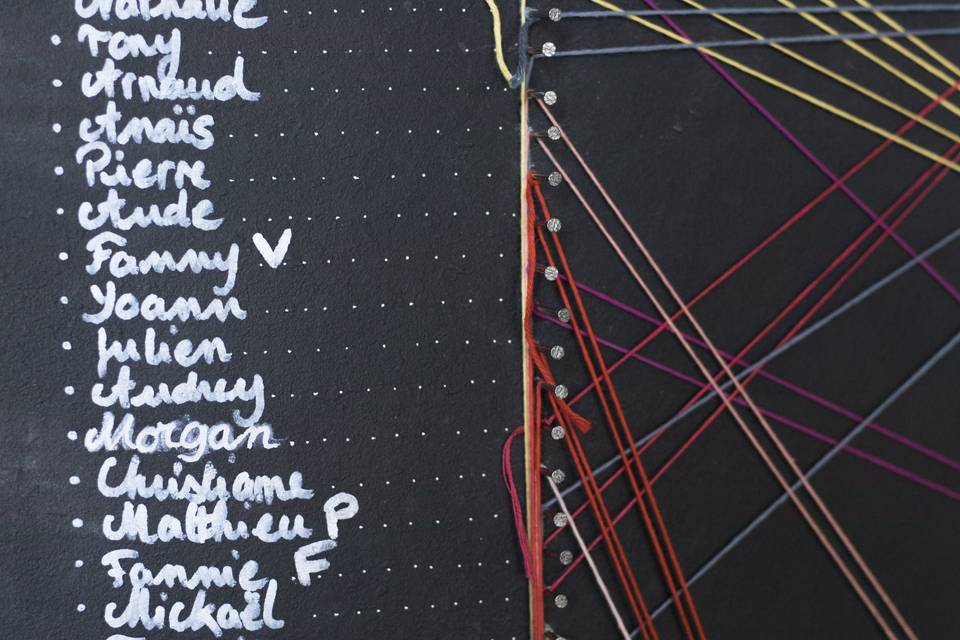 Nathalie
Tony
Arnaud
Anaïs
Pierre
Aude
Fanny V
Yoann
Julien
Audrey
Morgan
Christiane
Matthieu P
Fannie F
Mickaël